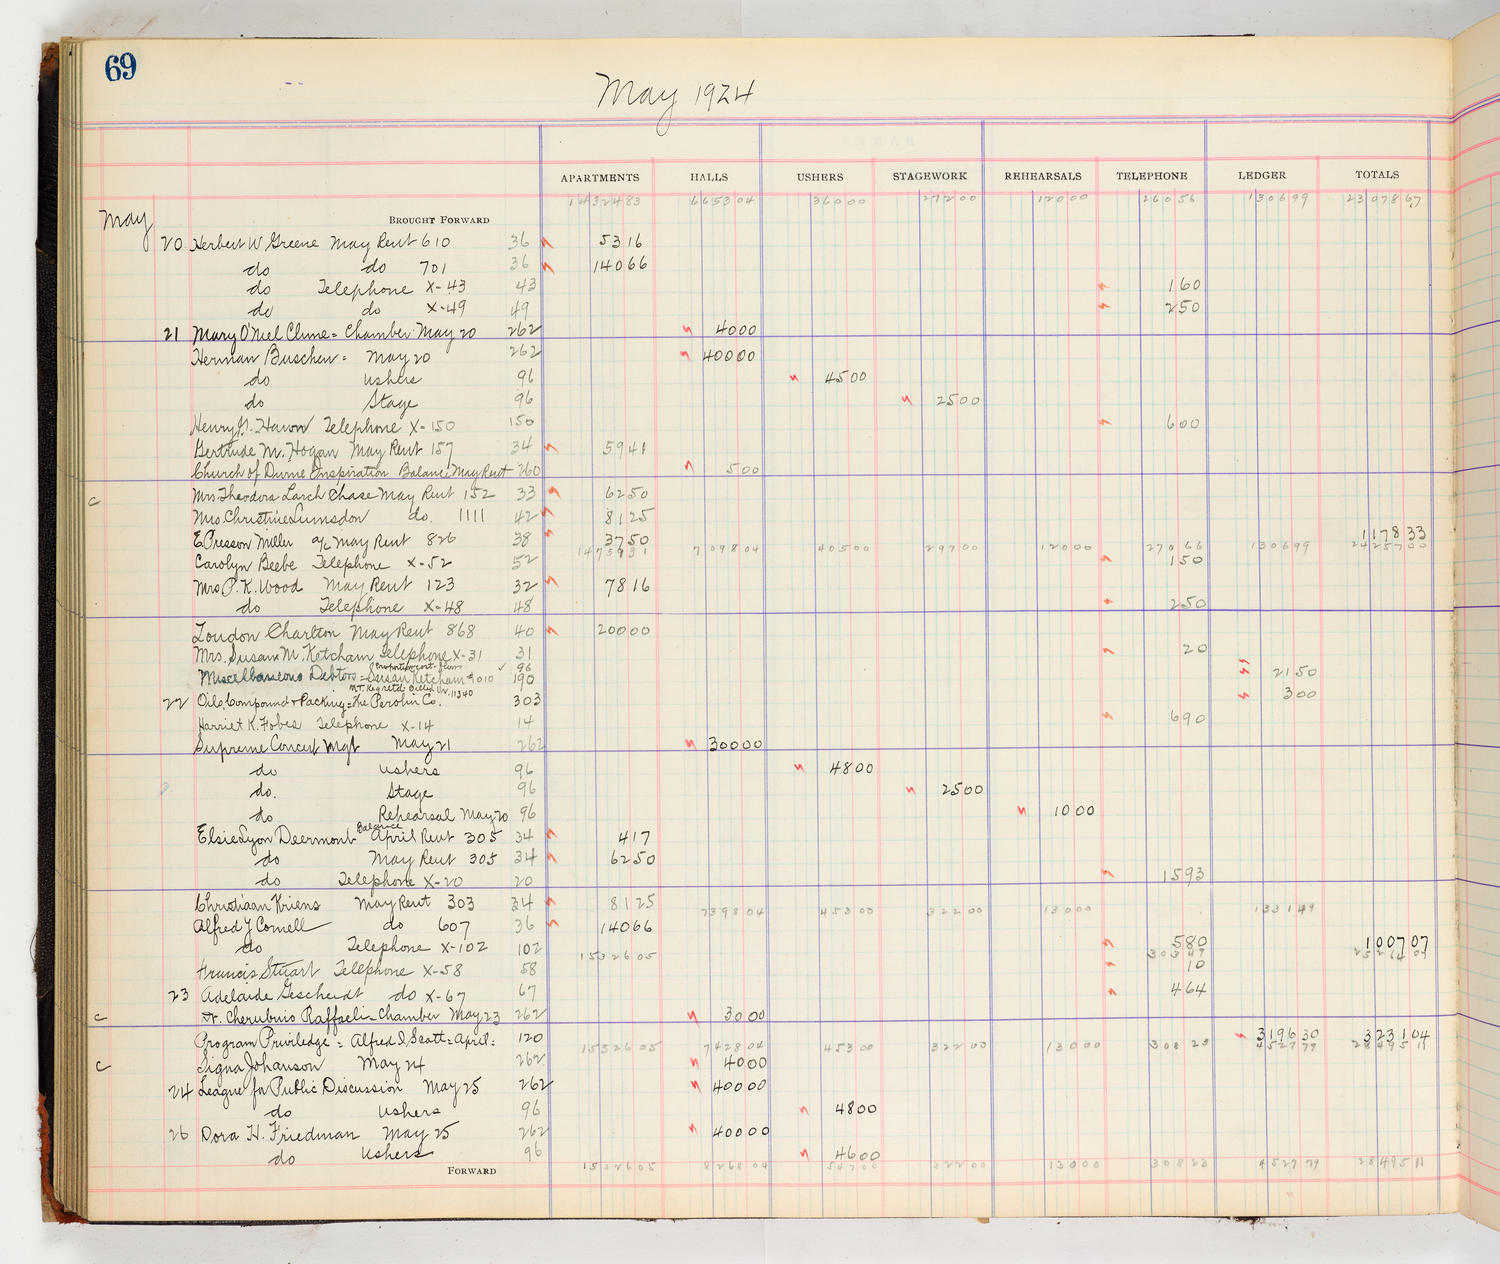 69
May 1924
APARTMENTS HALLS USHERS STAGEWORK REHEARSALS TELEPHONE LEDGER TOTALS
May BROUGHT FORWARD 14324 83 6653 04 360 00 272 00 120 00 260 56 1306 99 23078 67
20 Herbert W Greene May Rent 610 36 53 16
do do 701 36 140 66
do Telephone X-43 43 1 60
do do X-49 49 2 50
21 Mary O'Niel Clune = Chamber May 20 262 40 00
Herman Buschen = May 20 262 400 00
do ushers 96 45 00
do Stage 96 25 00
Henry G. Hawn Telephone X-150 150 6 00
Gertrude M. Hogan May Rent 157 34 59 41
Church of Divine Inspiration Balance May Rent 260 5 00
c Mrs Theodora Larch Chase May Rent 152 33 62 50
Mrs Christine Lumsdon do. 1111 42 81 25
E Presson Miller a/c May Rent 826 38 37 50 1178 33
14759 31 7098 04 405 00 297 00 120 00 270 66 1306 99 24257 00
Carolyn Beebe Telephone X-52 52 1 50
Mrs P. K. Wood May Rent 123 32 78 16
do Telephone X-48 48 2 50
Loudon Charlton May Rent 868 40 200 00
Mrs. Susan M. Ketcham Telephone X-31 31 20
Proportion cost ✓ 96
Miscellaneous Debtors = Susan Ketcham #1010 190 21 50
22 Oils, Compound & Packing = The Perolin Co. 303 3 00
Harriet K. Fobes Telephone X-14 14 6 90
Supreme Concert Mgt May 21 262 300 00
do ushers 96 48 00
do. Stage 96 25 00
do Rehearsal May 20 96 10 00
Elsie Lyon Deermont Balance April Rent 305 34 4 17
do May Rent 305 34 62 50
do Telephone X-20 20 15 93
Christiaan Kriens May Rent 303 34 81 25
7398 04 453 00 322 00 130 00 1331 49
Alfred Y Cornell do 607 36 140 66
do Telephone X-102 102 5 80 1007 07
15326 05 303 49 25264 07
Francis Stuart Telephone X-58 58 10
23 Adelaide Gescheidt do X-67 67 4 64
c Dr. Cherubino Raffaeli - Chamber May 23 262 30 00
Program Priviledge = Alfred I Scott = April: 120 3196 30 3231 04
15326 05 7428 04 453 00 322 00 130 00 308 23 4527 79 28495 11
c Signa Johanson May 24 262 40 00
24 League for Public Discussion May 25 262 400 00
do ushers 96 48 00
26 Dora H. Friedman May 25 262 400 00
do ushers 96 46 00
FORWARD 15326 05 8268 04 547 00 322 00 130 00 308 23 4527 79 28495 11